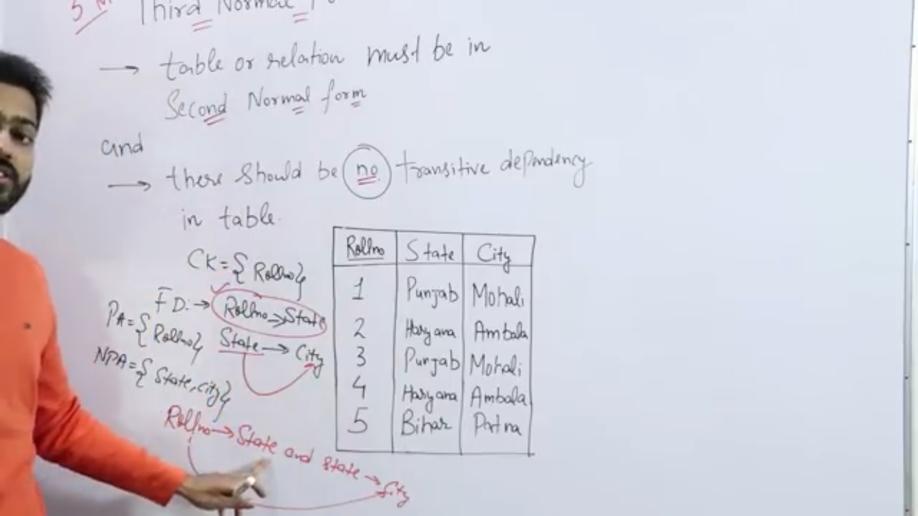 Third Normal
→ table or relation must be in
Second Normal form
and
→ there should be no transitive dependency
in table.
CK = {Rollno}
FD: → Rollno → State
State → City
PA = {Rollno}
NPA = {State, City}
Rollno → State and State → City
Rollno State City
1 Punjab Mohali
2 Haryana Ambala
3 Punjab Mohali
4 Haryana Ambala
5 Bihar Patna